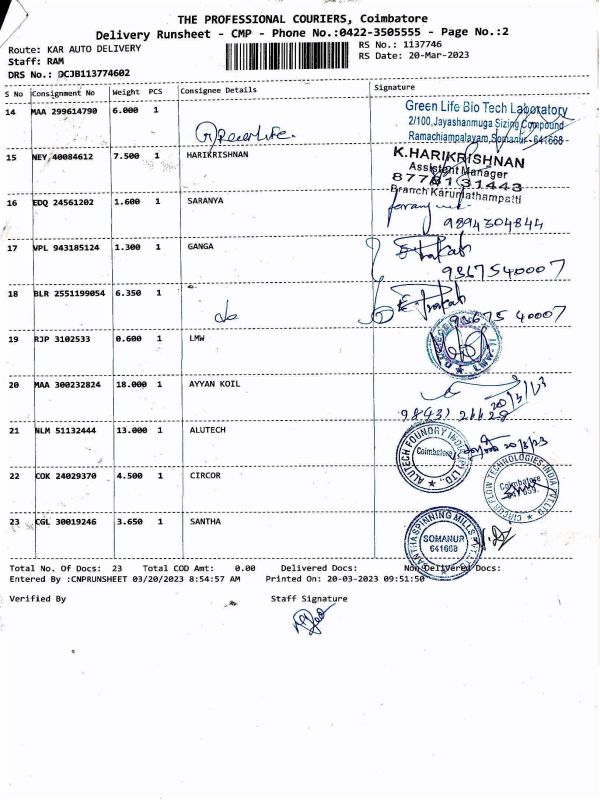 THE PROFESSIONAL COURIERS, Coimbatore
Delivery Runsheet - CMP - Phone No.:0422-3505555 - Page No.:2
Route: KAR AUTO DELIVERY
RS No.: 1137746
Staff: RAM
RS Date: 20-Mar-2023
DRS No.: DCJB113774602
S No Consignment No Weight PCS Consignee Details Signature
14 MAA 299614790 6.000 1
Green Life Bio Tech Laboratory
2/100, Jayashanmuga Sizing Compound
Ramachiampalayam, Somanur - 641668
15 NEY 40084612 7.500 1 HARIKRISHNAN
K.HARIKRISHNAN
Assistent Manager
8778131443
Branch Karumathampatti
16 EDQ 24561202 1.600 1 SARANYA
9894304844
17 VPL 943185124 1.300 1 GANGA
9367540007
18 BLR 2551199054 6.350 1
do
93675 40007
19 RJP 3102533 0.600 1 LMW
20 MAA 300232824 18.000 1 AYYAN KOIL
20/3/23
98431 21128
21 NLM 51132444 13.000 1 ALUTECH
ALUTECH FOUNDRY INDIA (P) LTD
Coimbatore
20/3/23
22 COK 24029370 4.500 1 CIRCOR
CIRCOR FLOW TECHNOLOGIES INDIA PVT LTD
Coimbatore
641 659.
23 CGL 30019246 3.650 1 SANTHA
SANTHA SPINNING MILLS PVT LTD
SOMANUR
641668
Total No. Of Docs: 23 Total COD Amt: 0.00 Delivered Docs: Non Delivered Docs:
Entered By :CNPRUNSHEET 03/20/2023 8:54:57 AM Printed On: 20-03-2023 09:51:50
Verified By Staff Signature